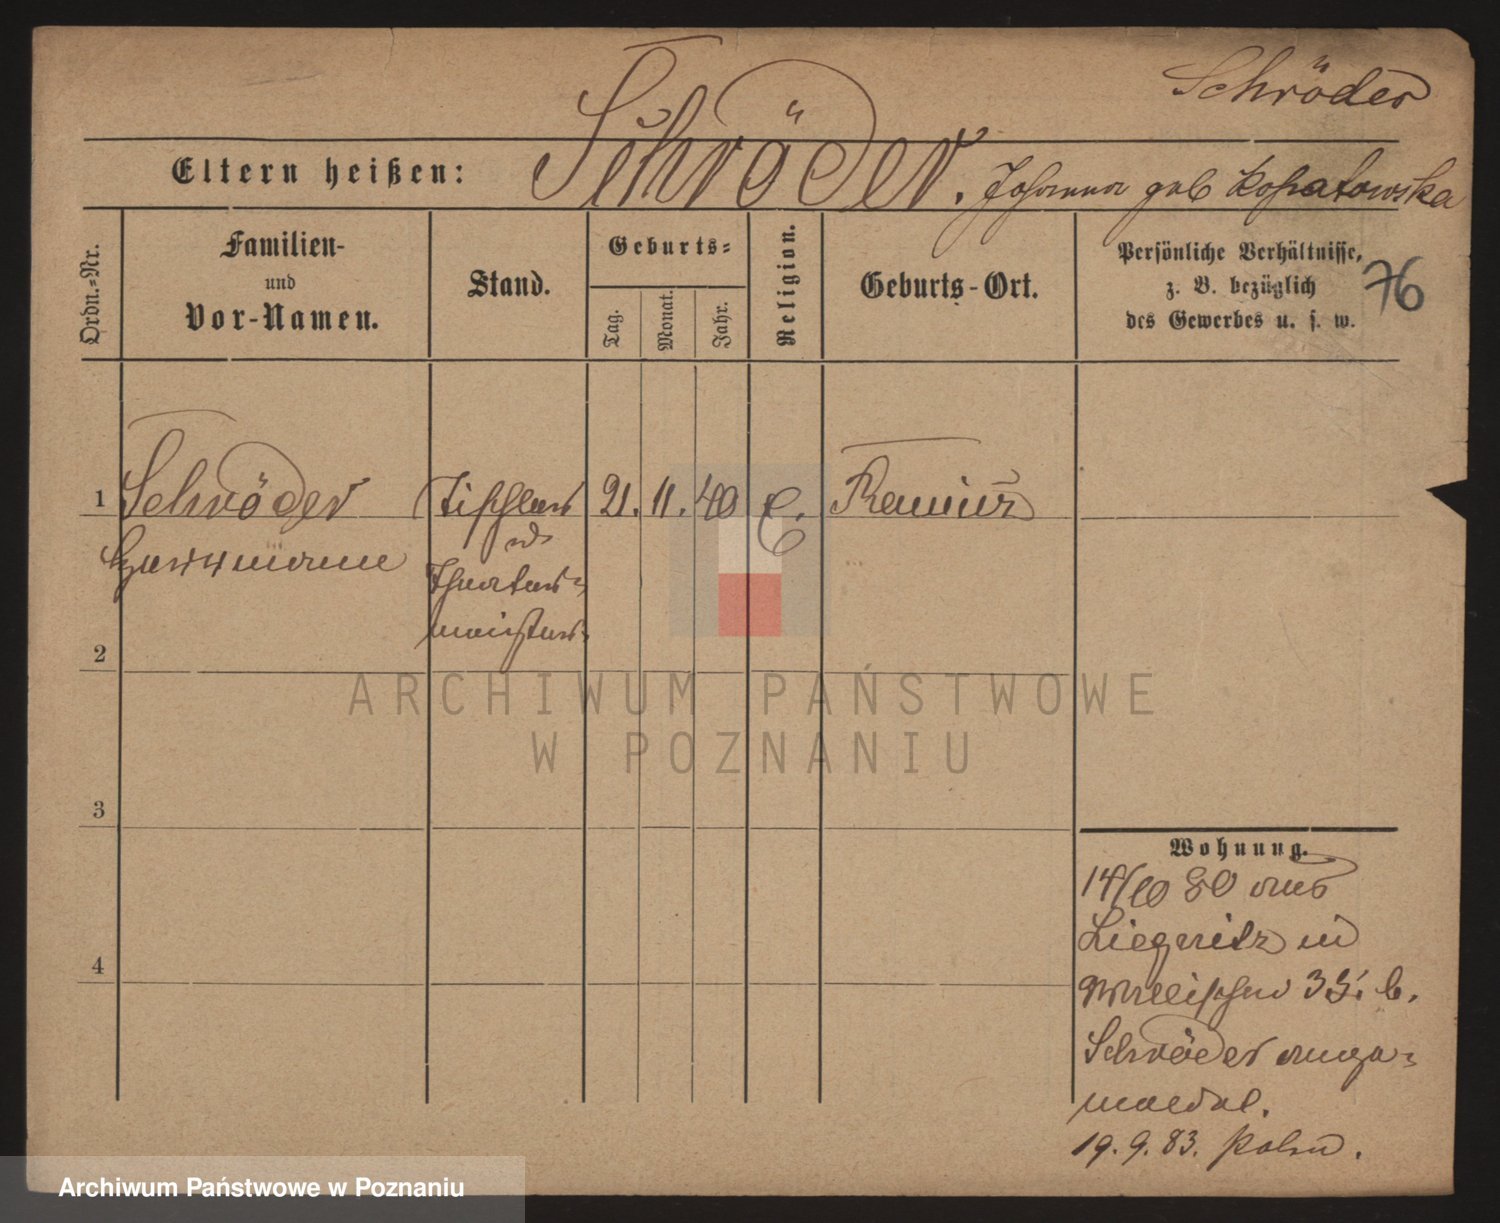 Schröder
Eltern heißen: Schröder. Johanna geb Kopatowska
Ordn.-Nr.
Familien-
und
Vor-Namen.
Stand.
Geburts-
Tag.
Monat.
Jahr.
Religion.
Geburts-Ort.
Persönliche Verhältnisse,
z. B. bezüglich
des Gewerbes u. s. w.
76
1 Schröder Tischler 21. 11. 40 E.
Herrmann
Theater-
meister
2
3
4
Wohnung.
14/10 80 aus
Liegnitz in
Wallischei 35. b.
Schröder ange-
meldet.
19. 9. 83.
ARCHIWUM PAŃSTWOWE
W POZNANIU
Archiwum Państwowe w Poznaniu